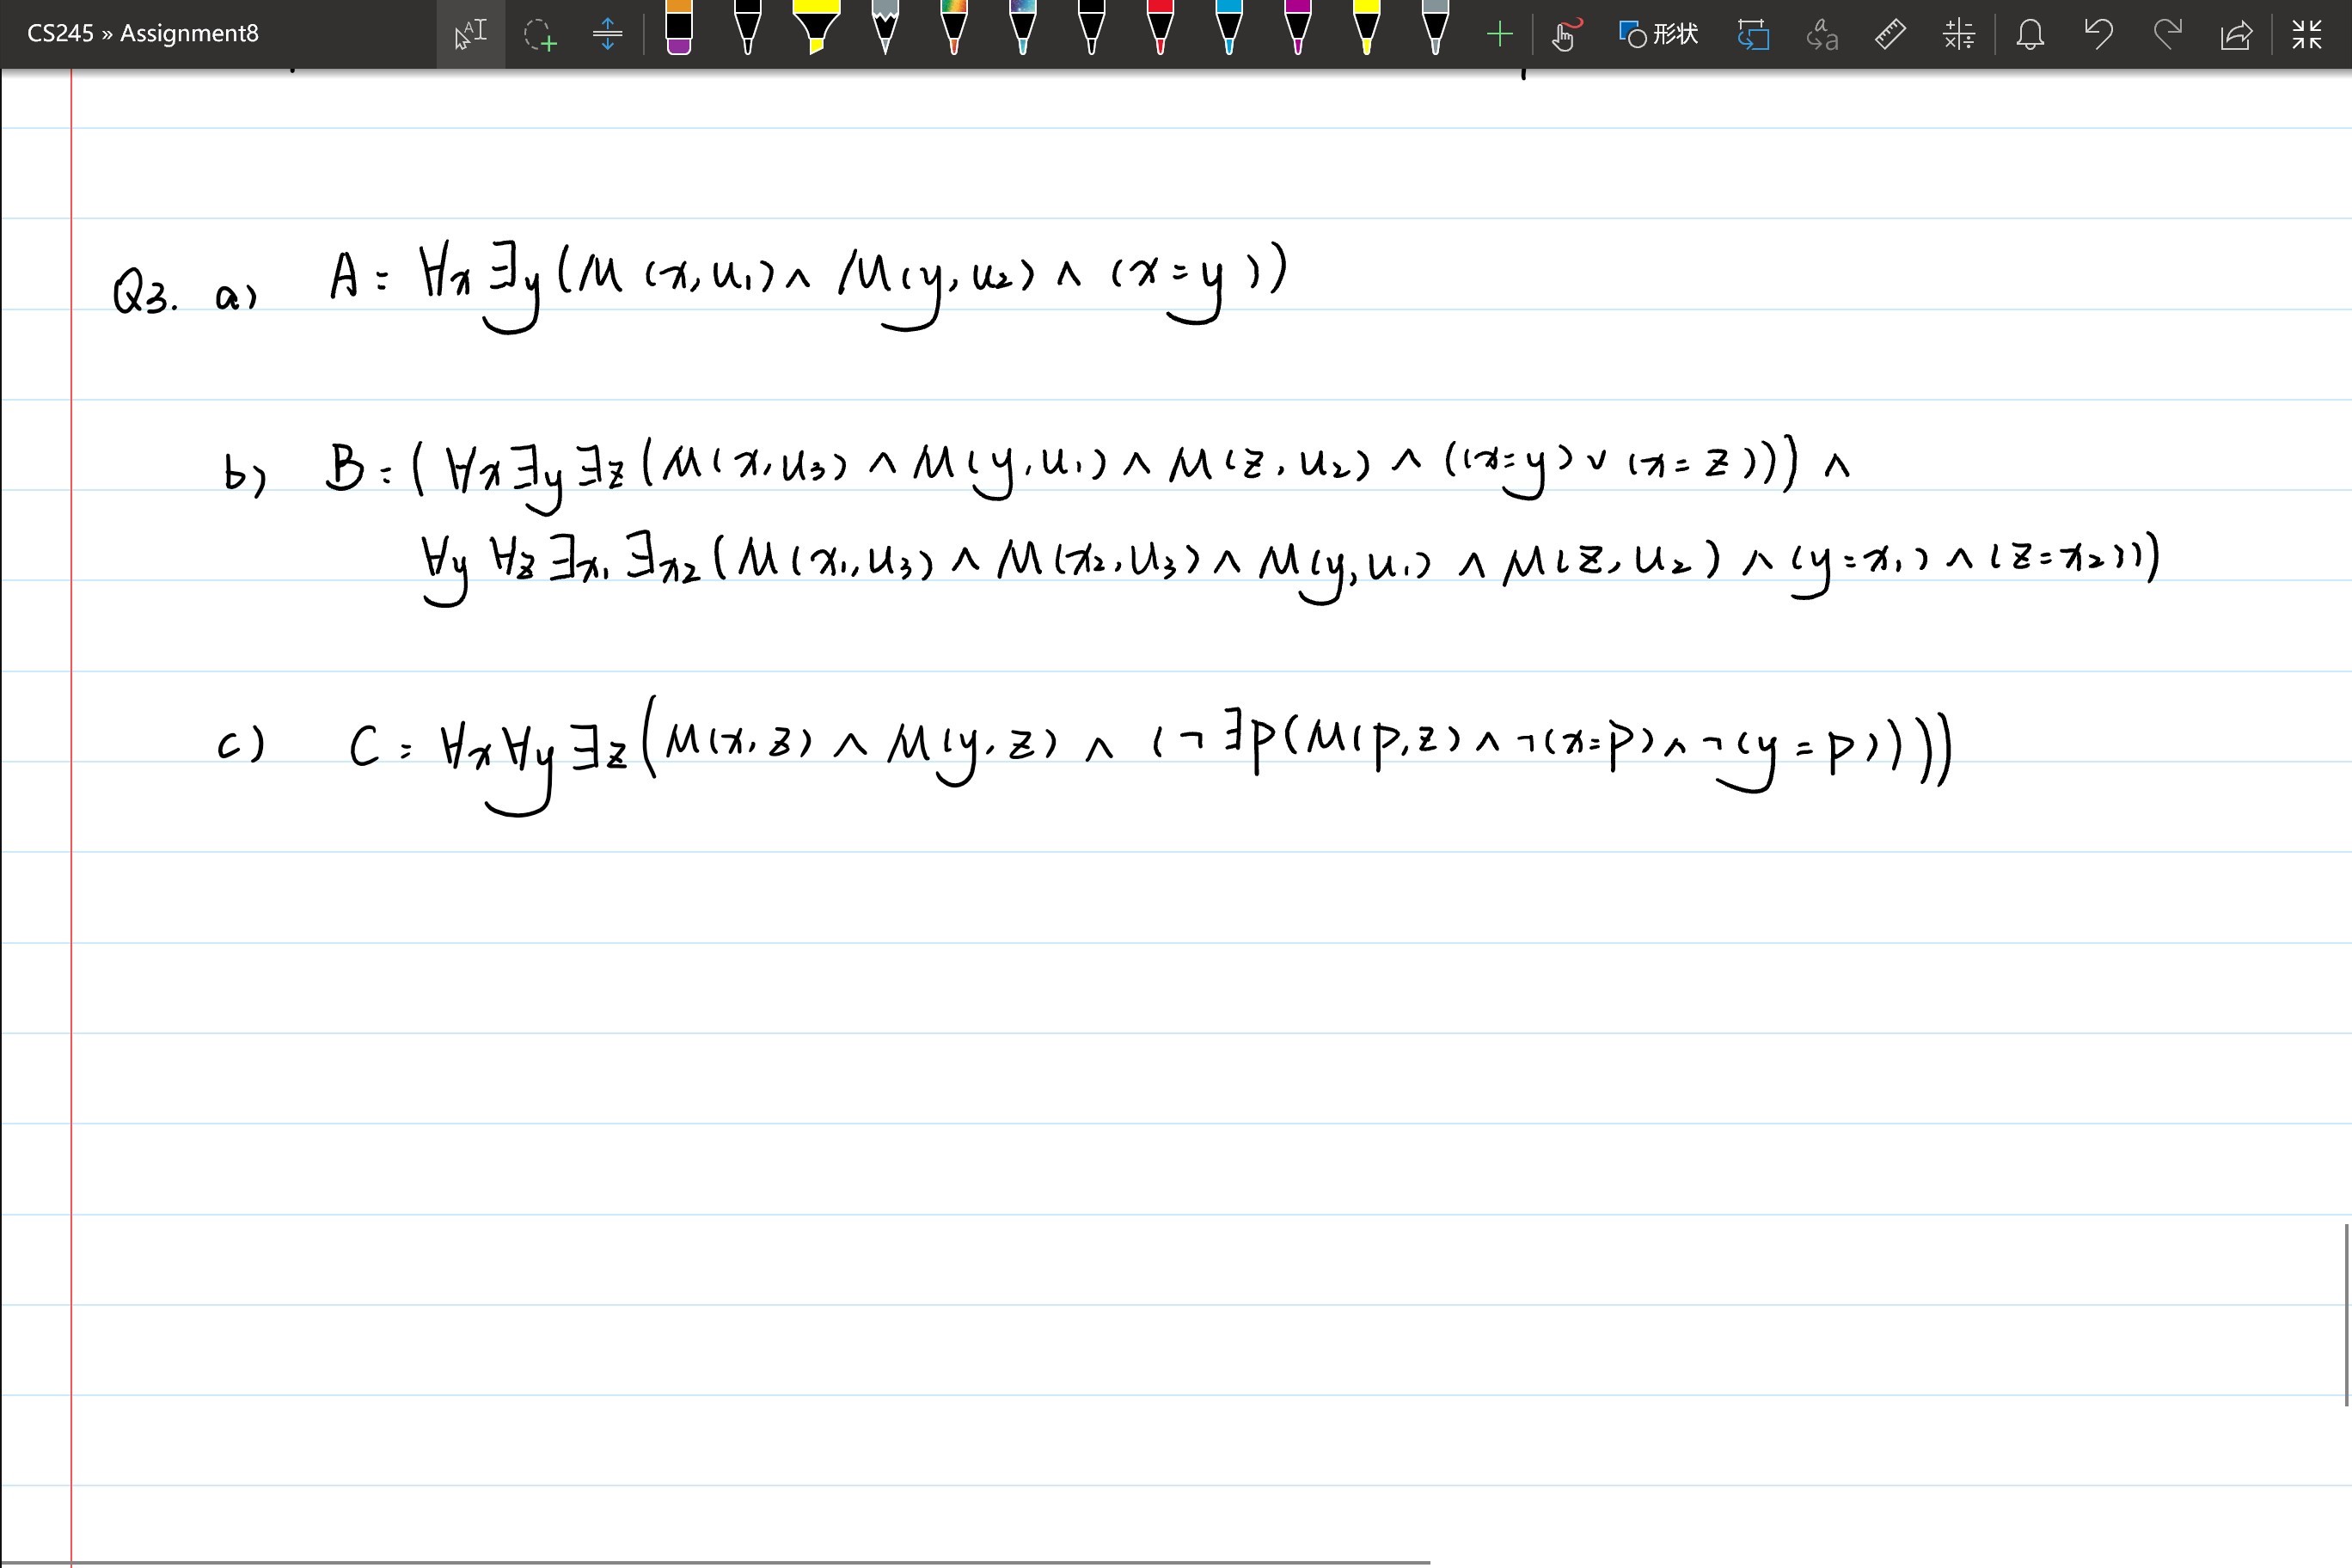 CS245 » Assignment8
形状
Q3. a) A = ∀x ∃y (M(x, u₁) ∧ M(y, u₂) ∧ (x = y))
b) B = (∀x ∃y ∃z (M(x, u₃) ∧ M(y, u₁) ∧ M(z, u₂) ∧ ((x = y) ∨ (x = z))) ∧
∀y ∀z ∃x₁ ∃x₂ (M(x₁, u₃) ∧ M(x₂, u₃) ∧ M(y, u₁) ∧ M(z, u₂) ∧ (y = x₁) ∧ (z = x₂)))
c) C = ∀x ∀y ∃z (M(x, z) ∧ M(y, z) ∧ (¬∃p(M(p, z) ∧ ¬(x = p) ∧ ¬(y = p))))